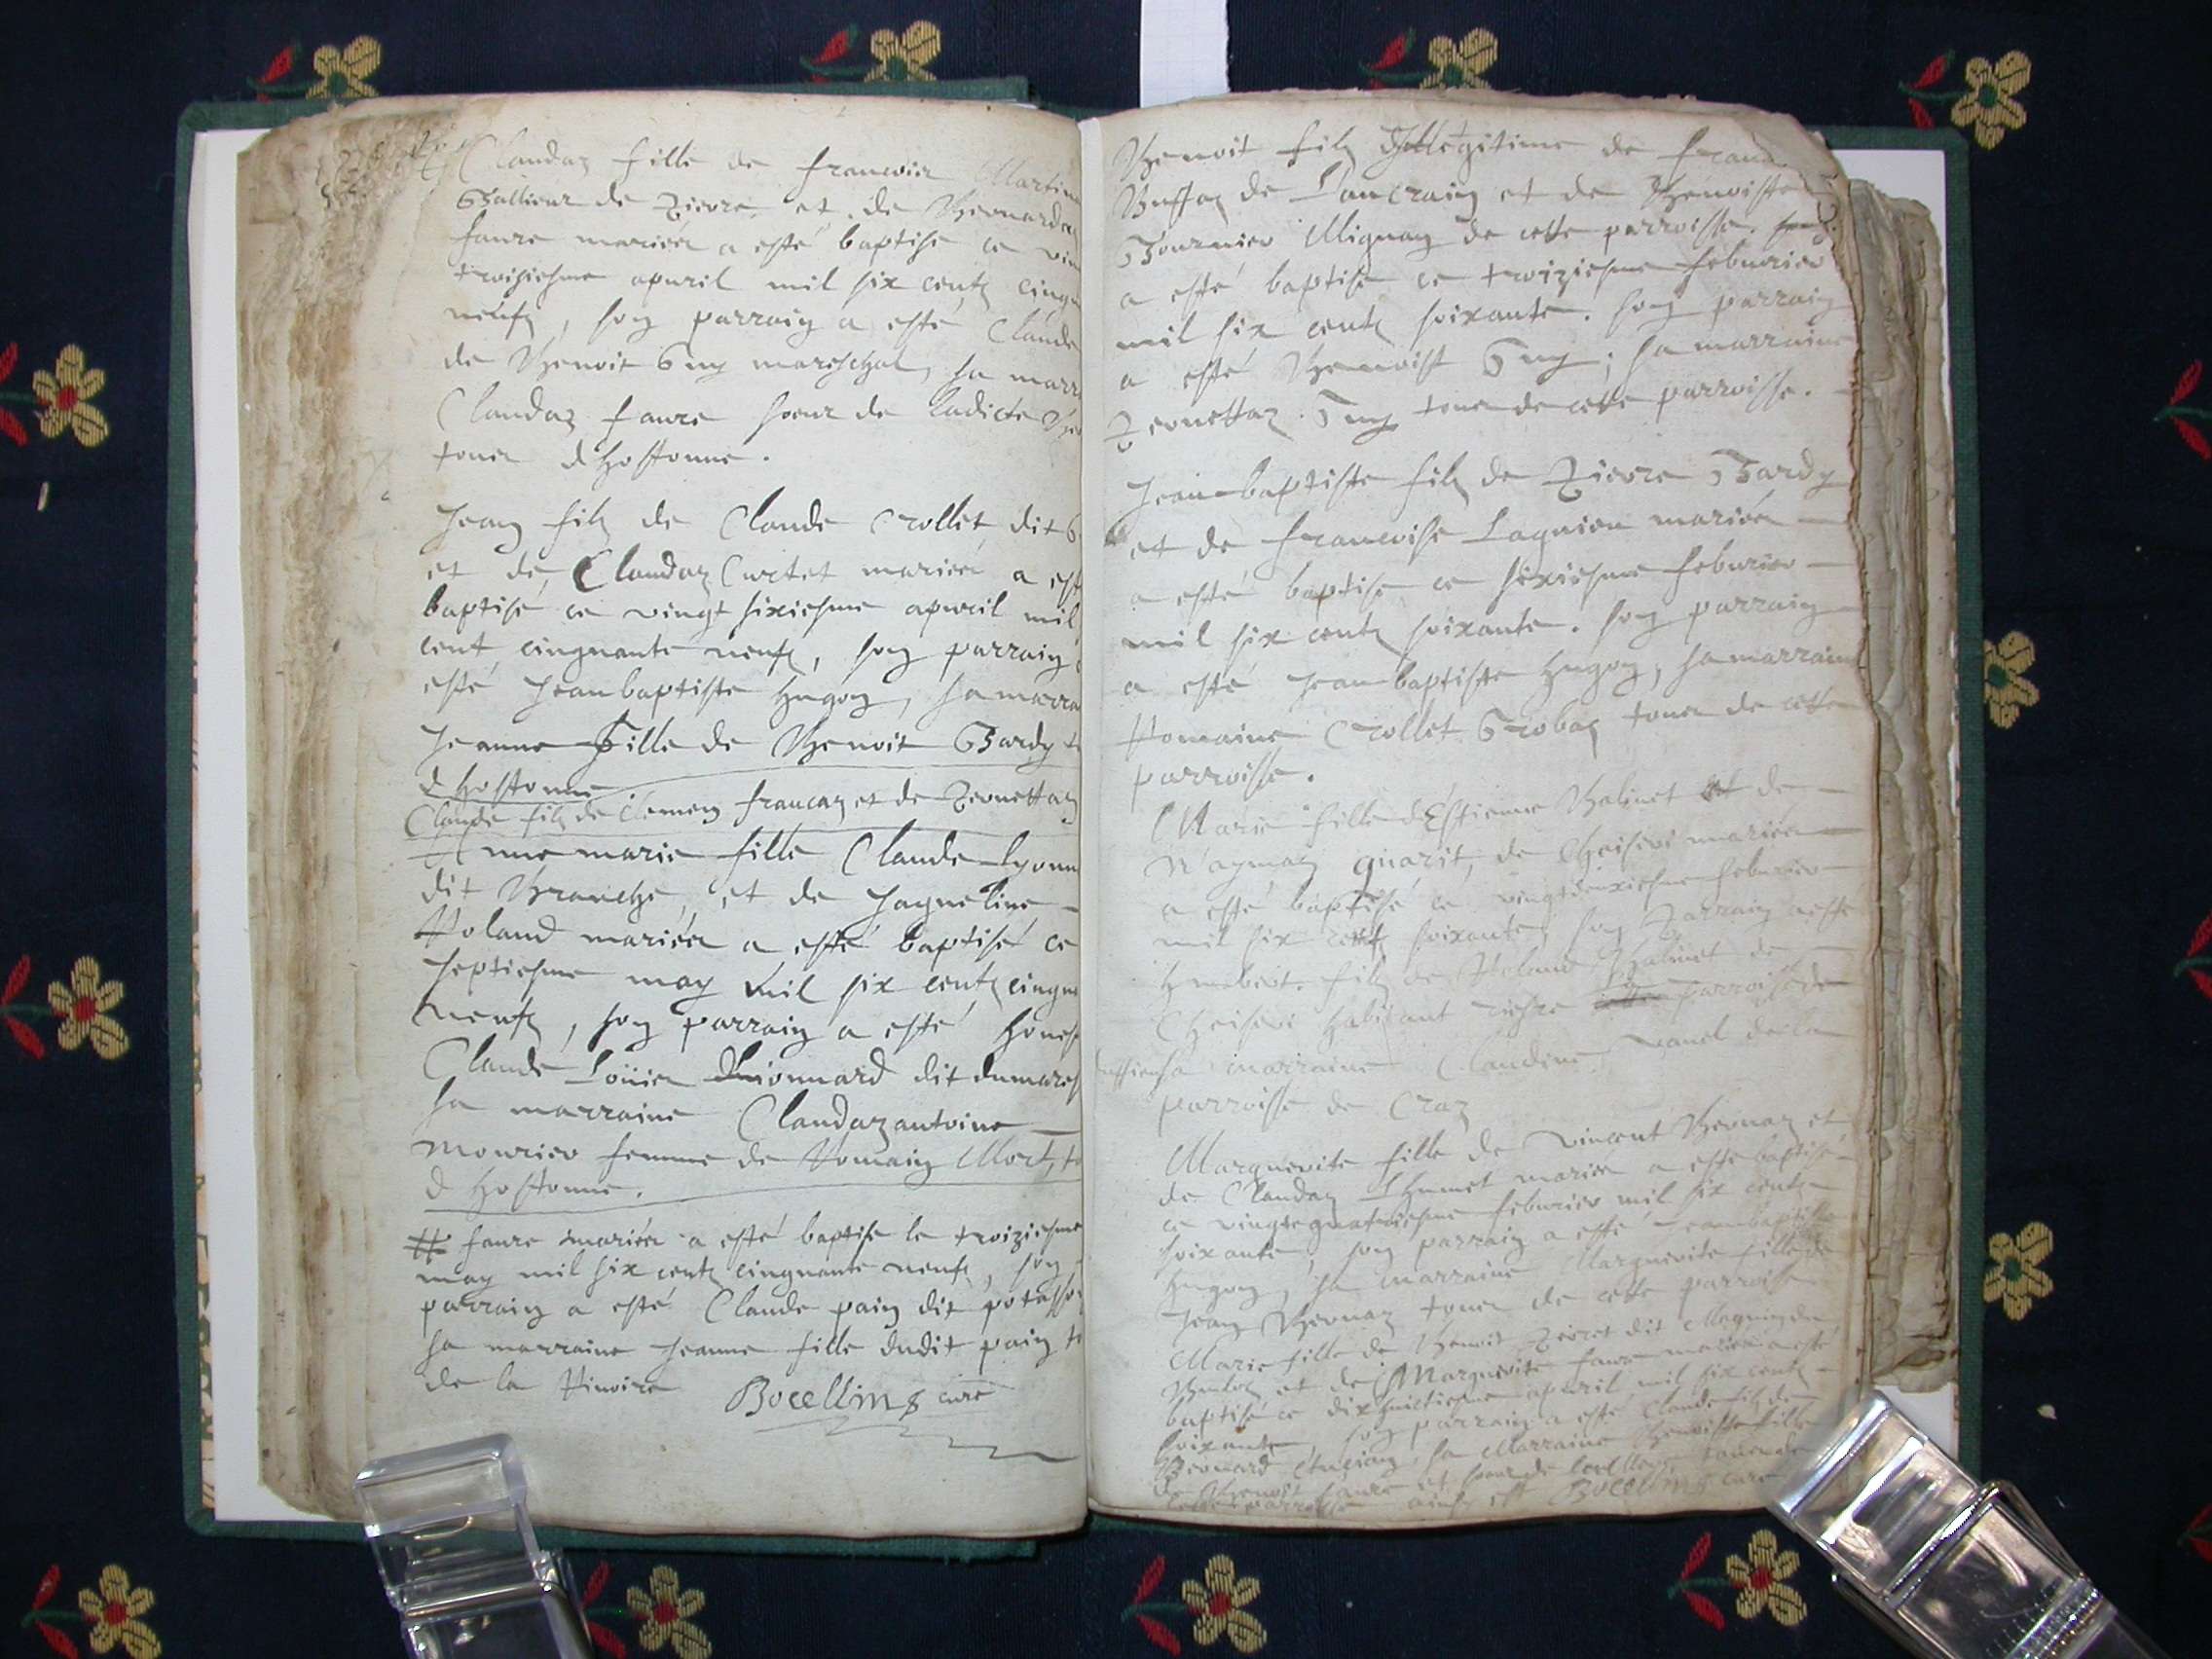 Claudaz fille de francois Martin
Gallieur de Pierre et de Bernarda
faure mariés a esté baptisé ce vin
troisiesme apvril mil six centz cinqu
neufz, son parrain a esté Claude
de Benoit Guy mareschal, sa marr
Claudaz faure soeur de ladicte
tous dhostonne.
Jean filz de Claude Crollet dit
et de Claudaz Curtet mariés a est
baptisé ce vingt sixiesme apvril mil
cent cinquante neufz, son parrain
esté Jeanbaptiste hugon, sa marra
Jeanne fille de Benoit Bardy
dhostonne
Claude filz de Clemen francaz et de Pernettaz
Anne marie fille Claude Lyonn
dit Branche, et de Jaqueline
Roland mariés a esté baptisé ce
septiesme may mil six centz cinqu
neufz, son parrain a esté hones
Claude Louis Lionnard dit dumares
sa marraine Claudaz antoine
Mourier femme de Romain Mort
dhostonne.
# faure mariés a esté baptisé le troiziesme
may mil six centz cinquante neufz, son
parrain a esté Claude pain dit potasso
sa marraine Jeanne fille dudit pain
de la Riviere Bocellins curé
Benoit filz Illegitime de fran
Buffaz de Lancrain et de Benoiste
Fournier Mignaz de cette parroisse.
a esté baptisé ce troiziesme febvrier
mil six centz soixante. son parrain
a esté Benoist Guy; sa marraine
Pernettaz Guy tous de cette parroisse.
Jean baptiste filz de Pierre Bardy
et de francoise Lagnieu mariés
a esté baptisé ce sixiesme febvrier
mil six centz soixante. son parrain
a esté Jean baptiste hugon, sa marraine
Romaine Crollet Grobaz tous de cette
parroisse.
Marie fille dEstienne Balivet et de
Naymaz quarit, de Cheiseri mariés
a esté baptisé ce vingtdeuxiesme febvrier
mil six centz soixante, son Parrain a esté
humbert filz de Roland Balivet de
Cheiseri habitant parroisse de
sa marraine Claudine de la
parroisse de Craz
Marguerite fille de vincent Bernaz et
de Claudaz Thumet mariés a esté baptisé
ce vingtquatriesme febvrier mil six centz
soixante, son parrain a esté Jeanbaptiste
hugon, sa marraine Marguerite fille de
Jean Bernaz tous de cette parroisse
Marie fille de Benoit Perret dit Magnin
et de Marguerite faure mariés a esté
baptisé ce dixhuictiesme apvril mil six centz
soixante, son parrain a esté Claude filz de
Bernard sa Marraine Benoiste fille
de Benoit faure et soeur de tous de
cette parroisse ainsy est Bocellins curé